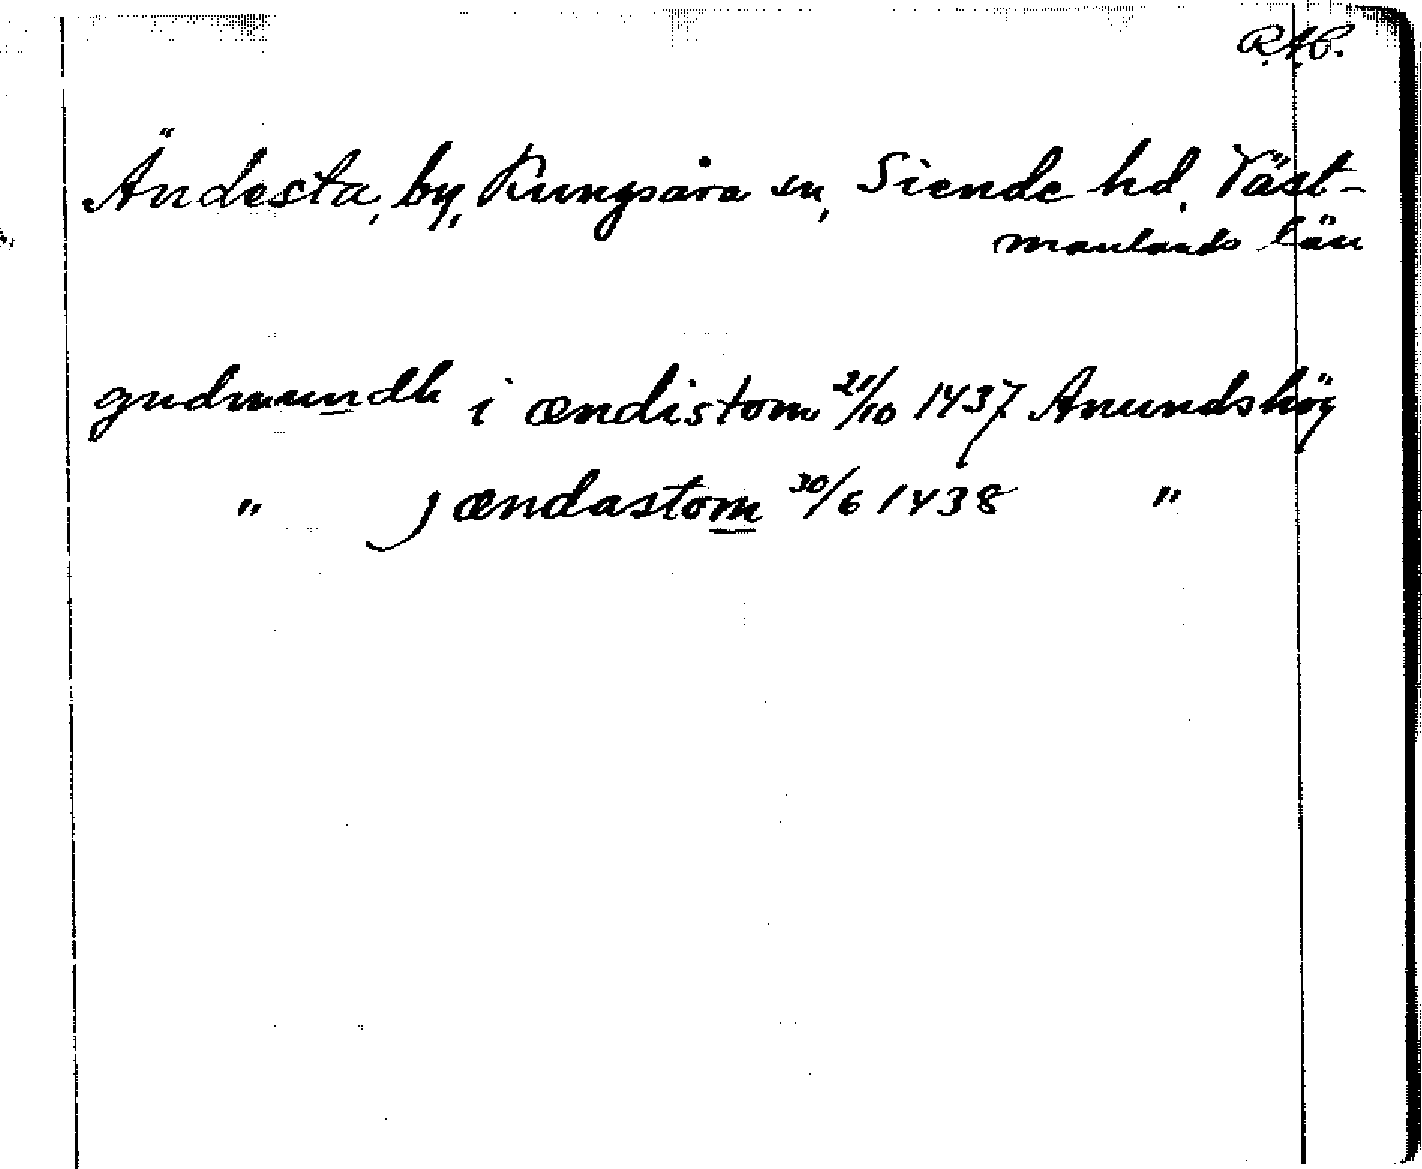 R.A.P.
Ändesta, by, Kungsåra sn, Siende hd, Väst-
manlands län
gudmundh i ændistom 21/10 1437. Anundshög
" j ændastom 30/6 1438 "